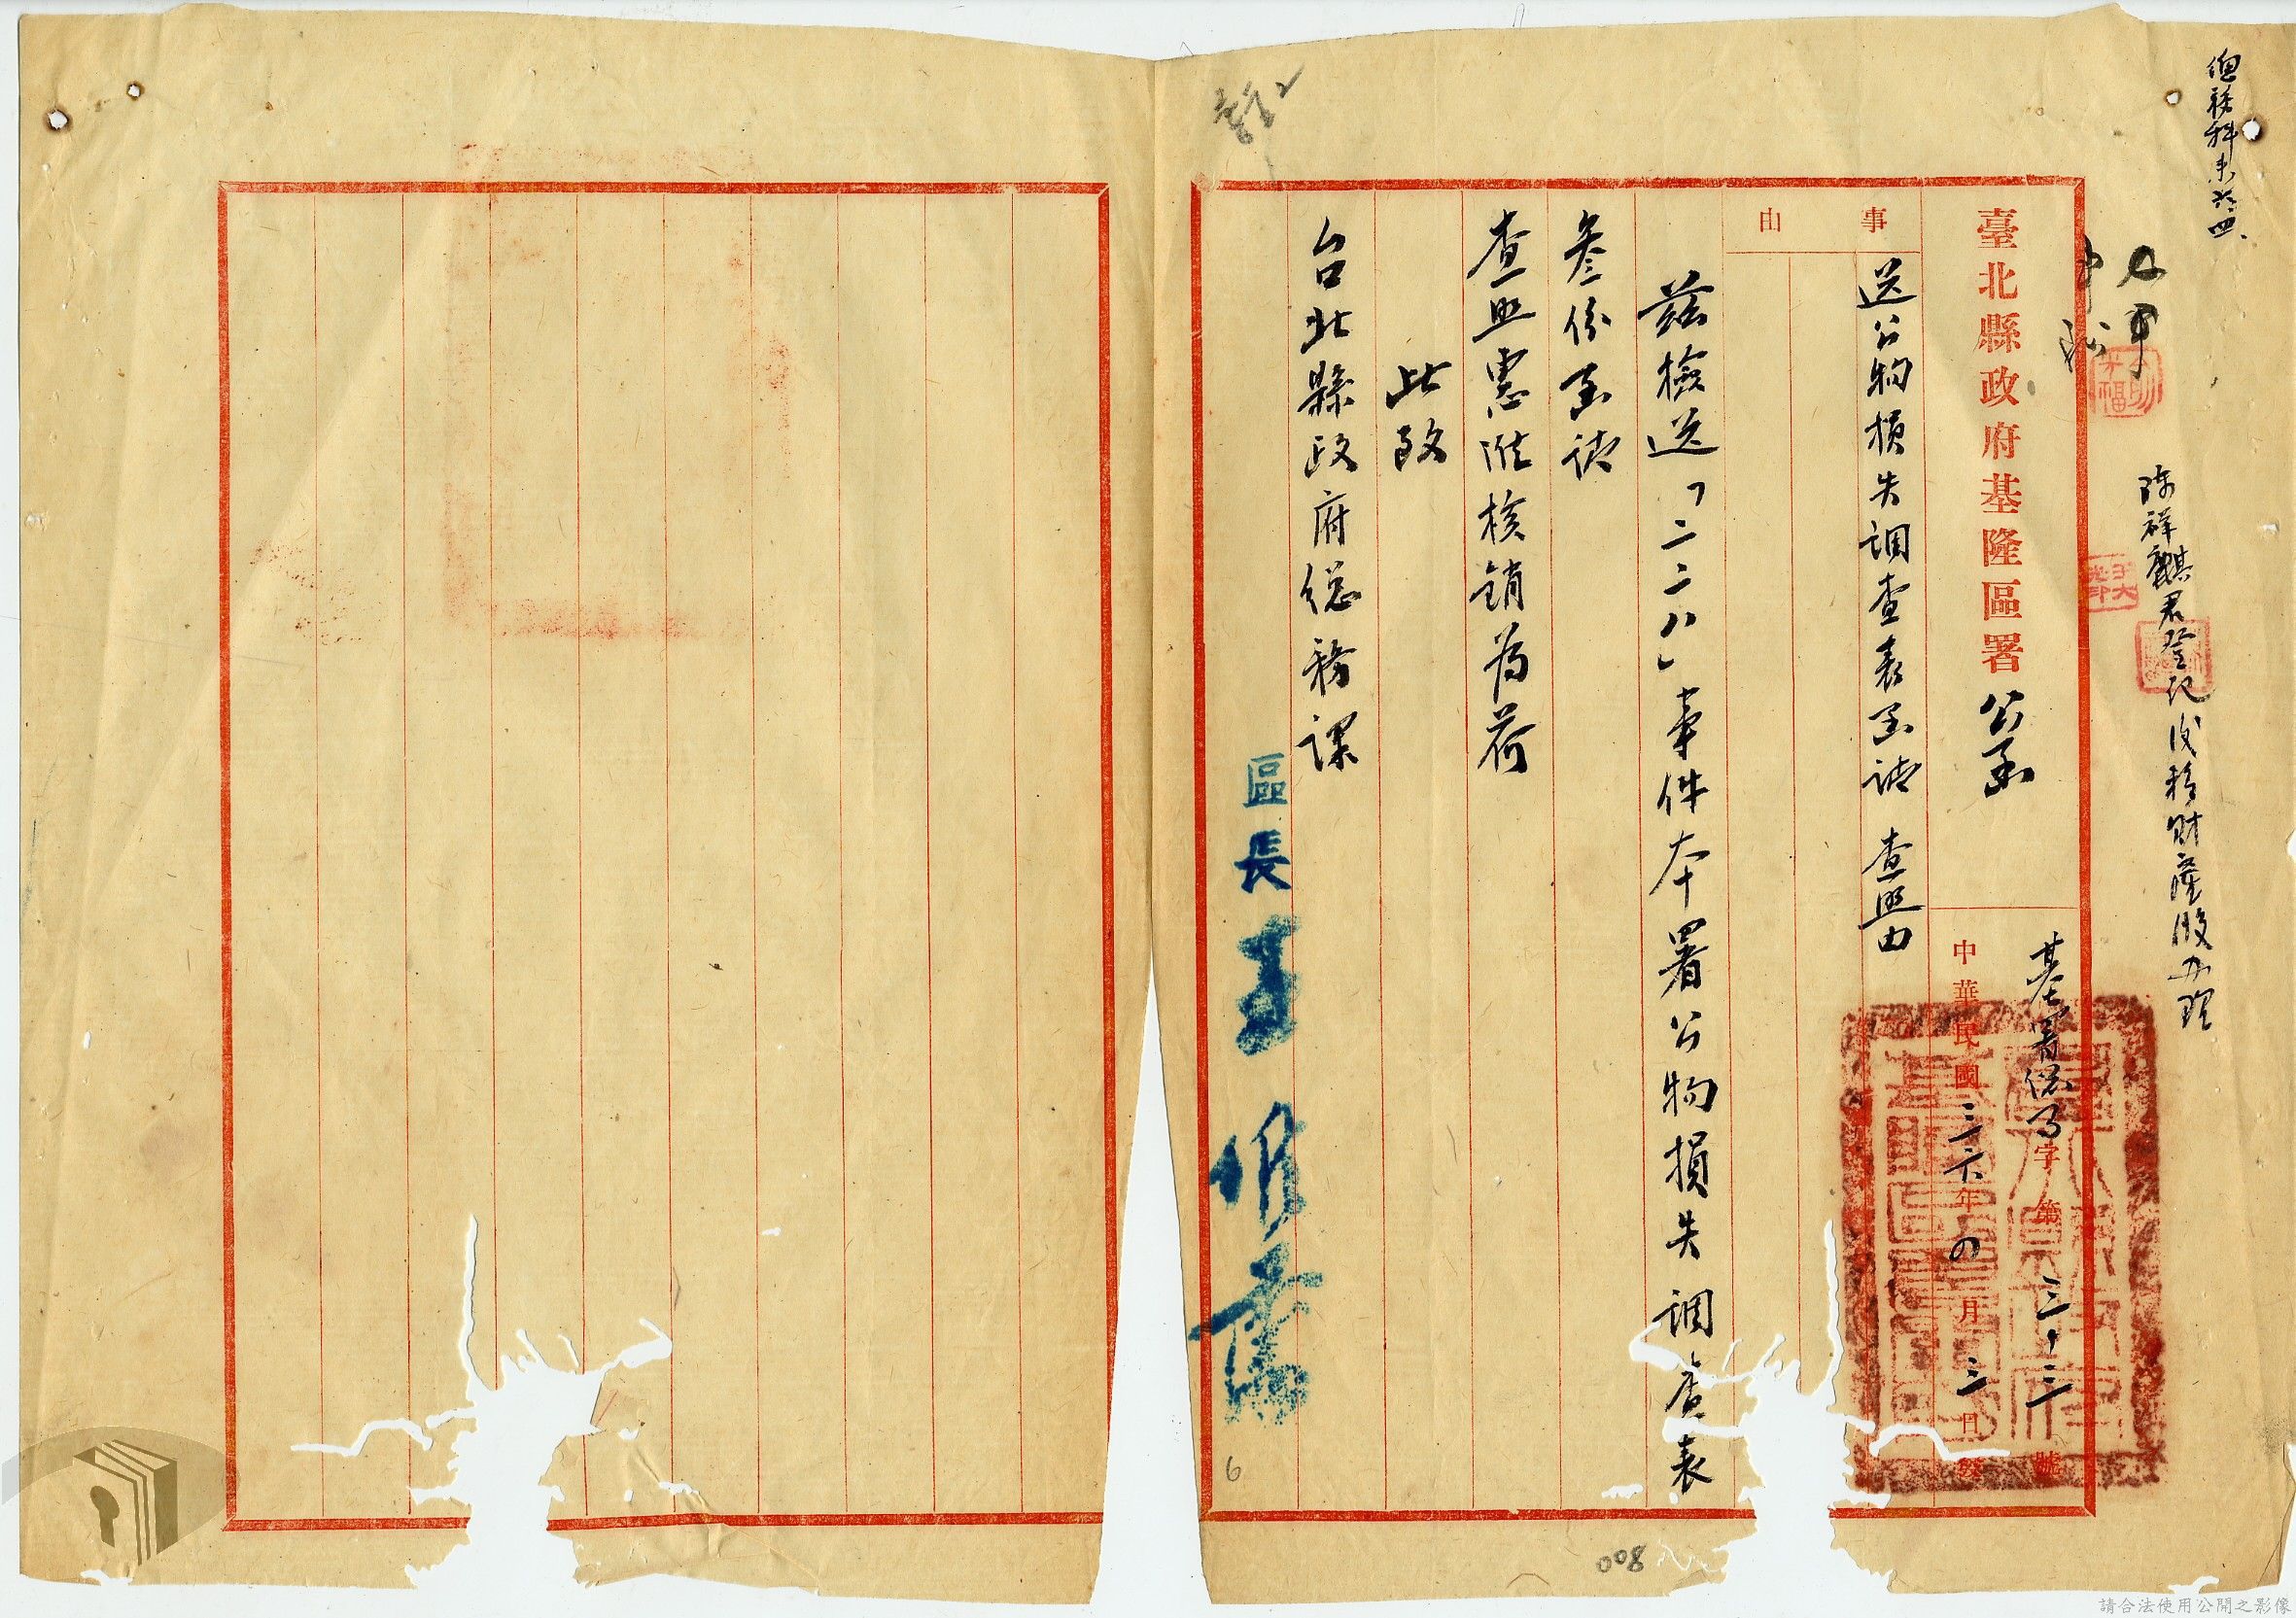 總務科
陳祥麒君登記後移財產股辦理
臺北縣政府基隆區署公函
基署總 字第三十三號
中華民國三六年四月三日發
事由
送公物損失調查表函請 查照由
茲檢送「二二八」事件本署公物損失調查表
叁份函請
查照惠准核銷為荷
此致
台北縣政府總務課
區長
6
008
請合法使用公開之影像